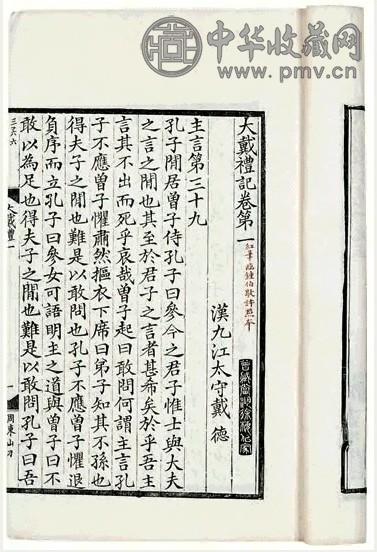 中华收藏网
www.pmv.cn
大戴禮記卷第一
漢九江太守戴 德
主言第三十九
孔子閒居曾子侍孔子曰參今之君子惟士與大夫
之言之聞也其至於君子之言者甚希矣於乎吾主
言其不出而死乎哀哉曾子起曰敢問何謂主言孔
子不應曾子懼肅然摳衣下席曰弟子知其不孫也
得夫子之閒也難是以敢問也孔子不應曾子懼退
負序而立孔子曰參女可語明主之道與曾子曰不
敢以為足也得夫子之閒也難是以敢問孔子曰吾
大戴禮一
一